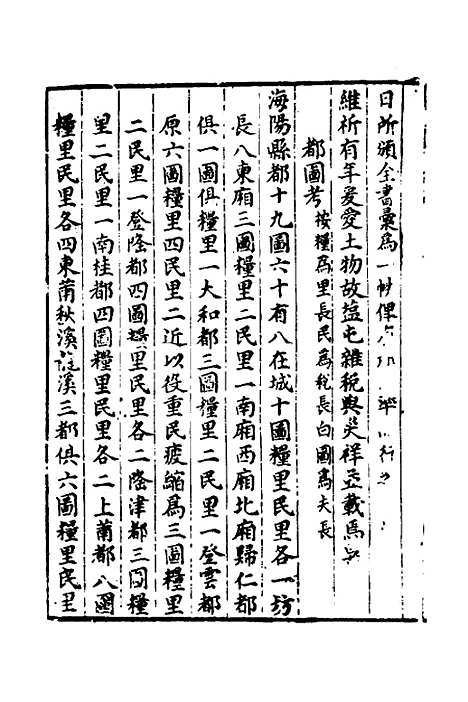 日所頒全書彙為一
維祈有年爰愛土物故塩屯雜稅與災祥並載焉
都圖考按糧為里長民為稅長白圖為夫長
海陽縣都十九圖六十有八在城十圖糧里民里各一坊
長八東廂三圖糧里二民里一南廂西廂北廂歸仁都
俱一圖俱糧里一大和都三圖糧里二民里一登雲都
原六圖糧里四民里二近以役重民疲縮為三圖糧里
二民里一登隆都四圖糧里民里各二隆津都三圖糧
里二民里一南桂都四圖糧里民里各二上莆都八圖
糧里民里各四東莆秋溪溪三都俱六圖糧里民里